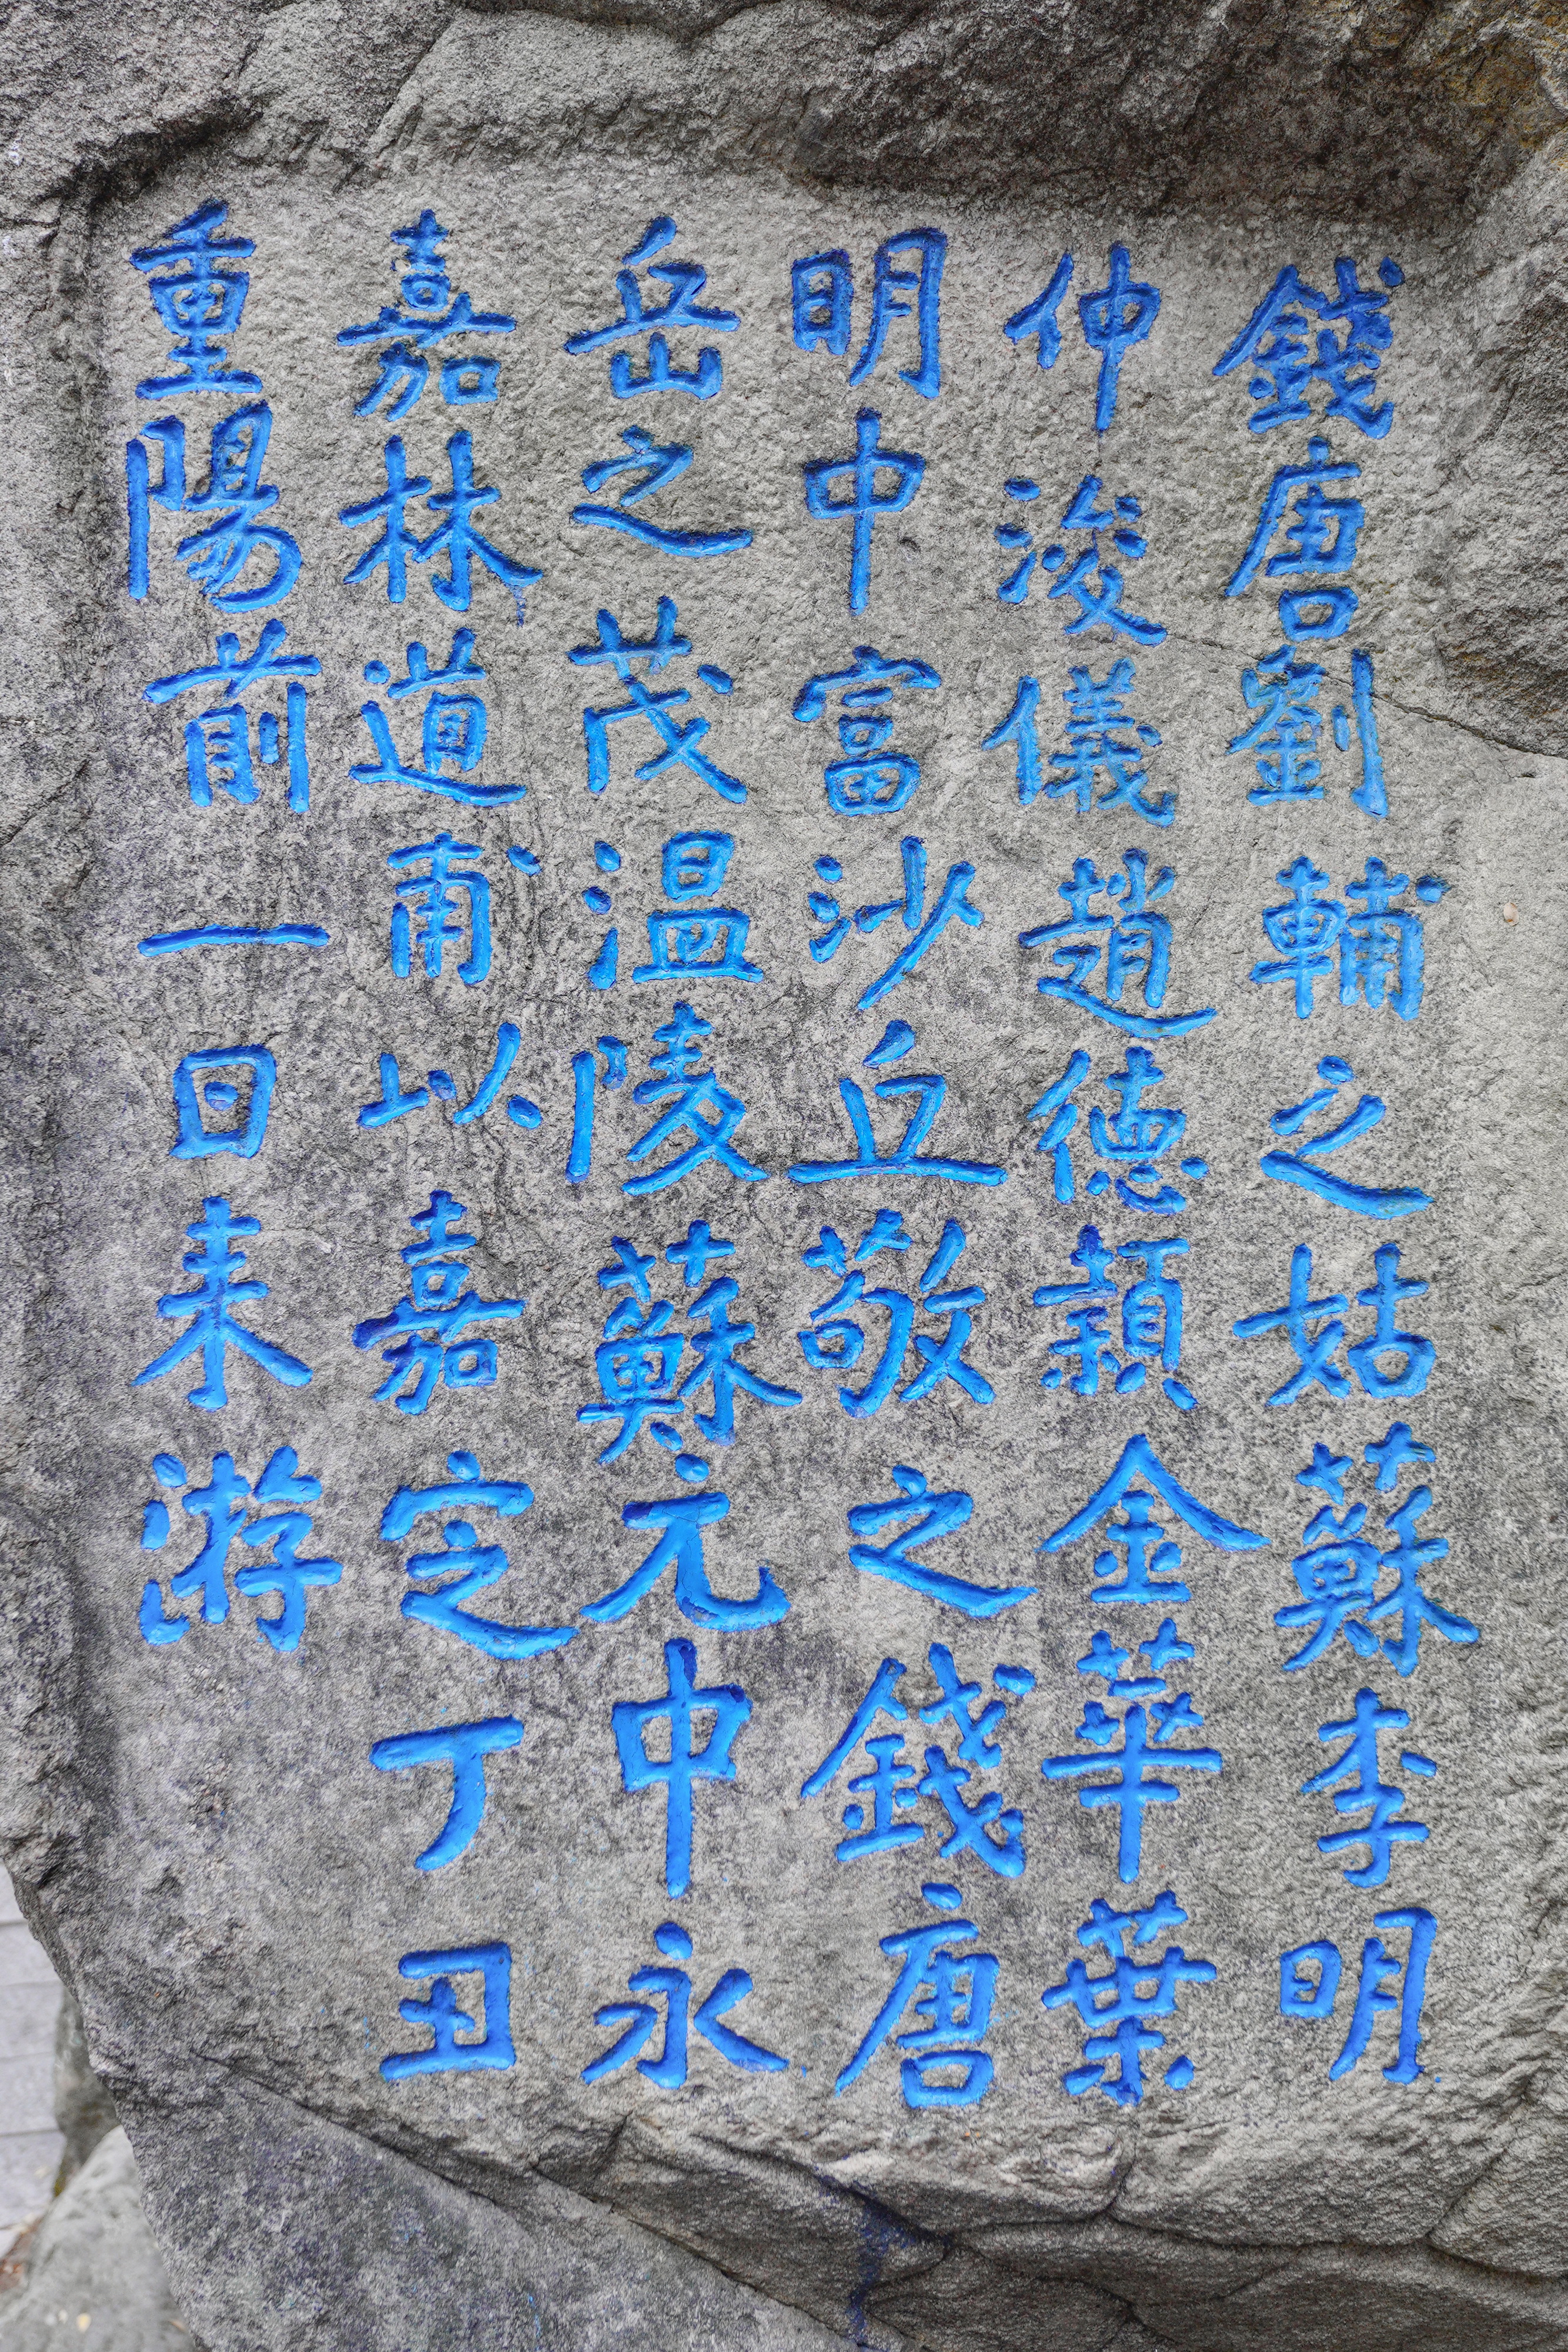 錢唐劉輔之姑蘇李明
仲浚儀趙德顈金華葉
明中富沙丘敬之錢唐
岳之茂温陵蘇元中永
嘉林道甫以嘉定丁丑
重陽前一日来游